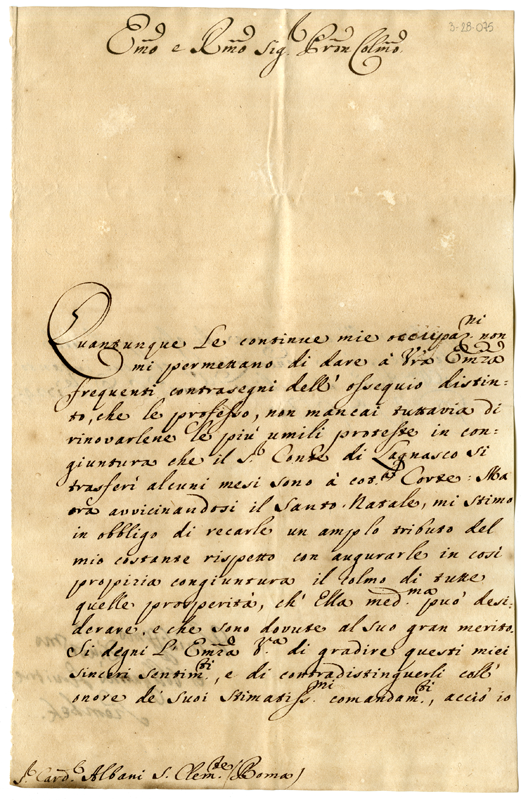 3-28-075
Em̃o e Rm̃o Sig.r Pron Colmo.
Quantunque Le continue mie occupaz.ni non
mi permettano di dare à Vr̃a Em̃za
frequenti contrasegni dell' ossequio distin-
to, che le professo, non mancai tuttavia di
rinovarlene le più umili proteste in con-
giuntura che il S.r Conte di Lagnasco si
trasferì alcuni mesi sono à cot.ta Corte: Ma
ora avvicinandosi il Santo Natale, mi stimo
in obbligo di recarle un amplo tributo del
mio costante rispetto con augurarle in così
propizia congiuntura il colmo di tutte
quelle prosperità, ch' Ella med.ma può desi-
derare, e che sono dovute al Suo gran merito.
Si degni L' Em̃za V.ra di gradire questi miei
sinceri sentim.ti, e di contradistinguerli coll'
onore de' Suoi Stimatiss.mi comandam.ti, acciò io
S.r Card.l Albani S. Clem.te (Roma)